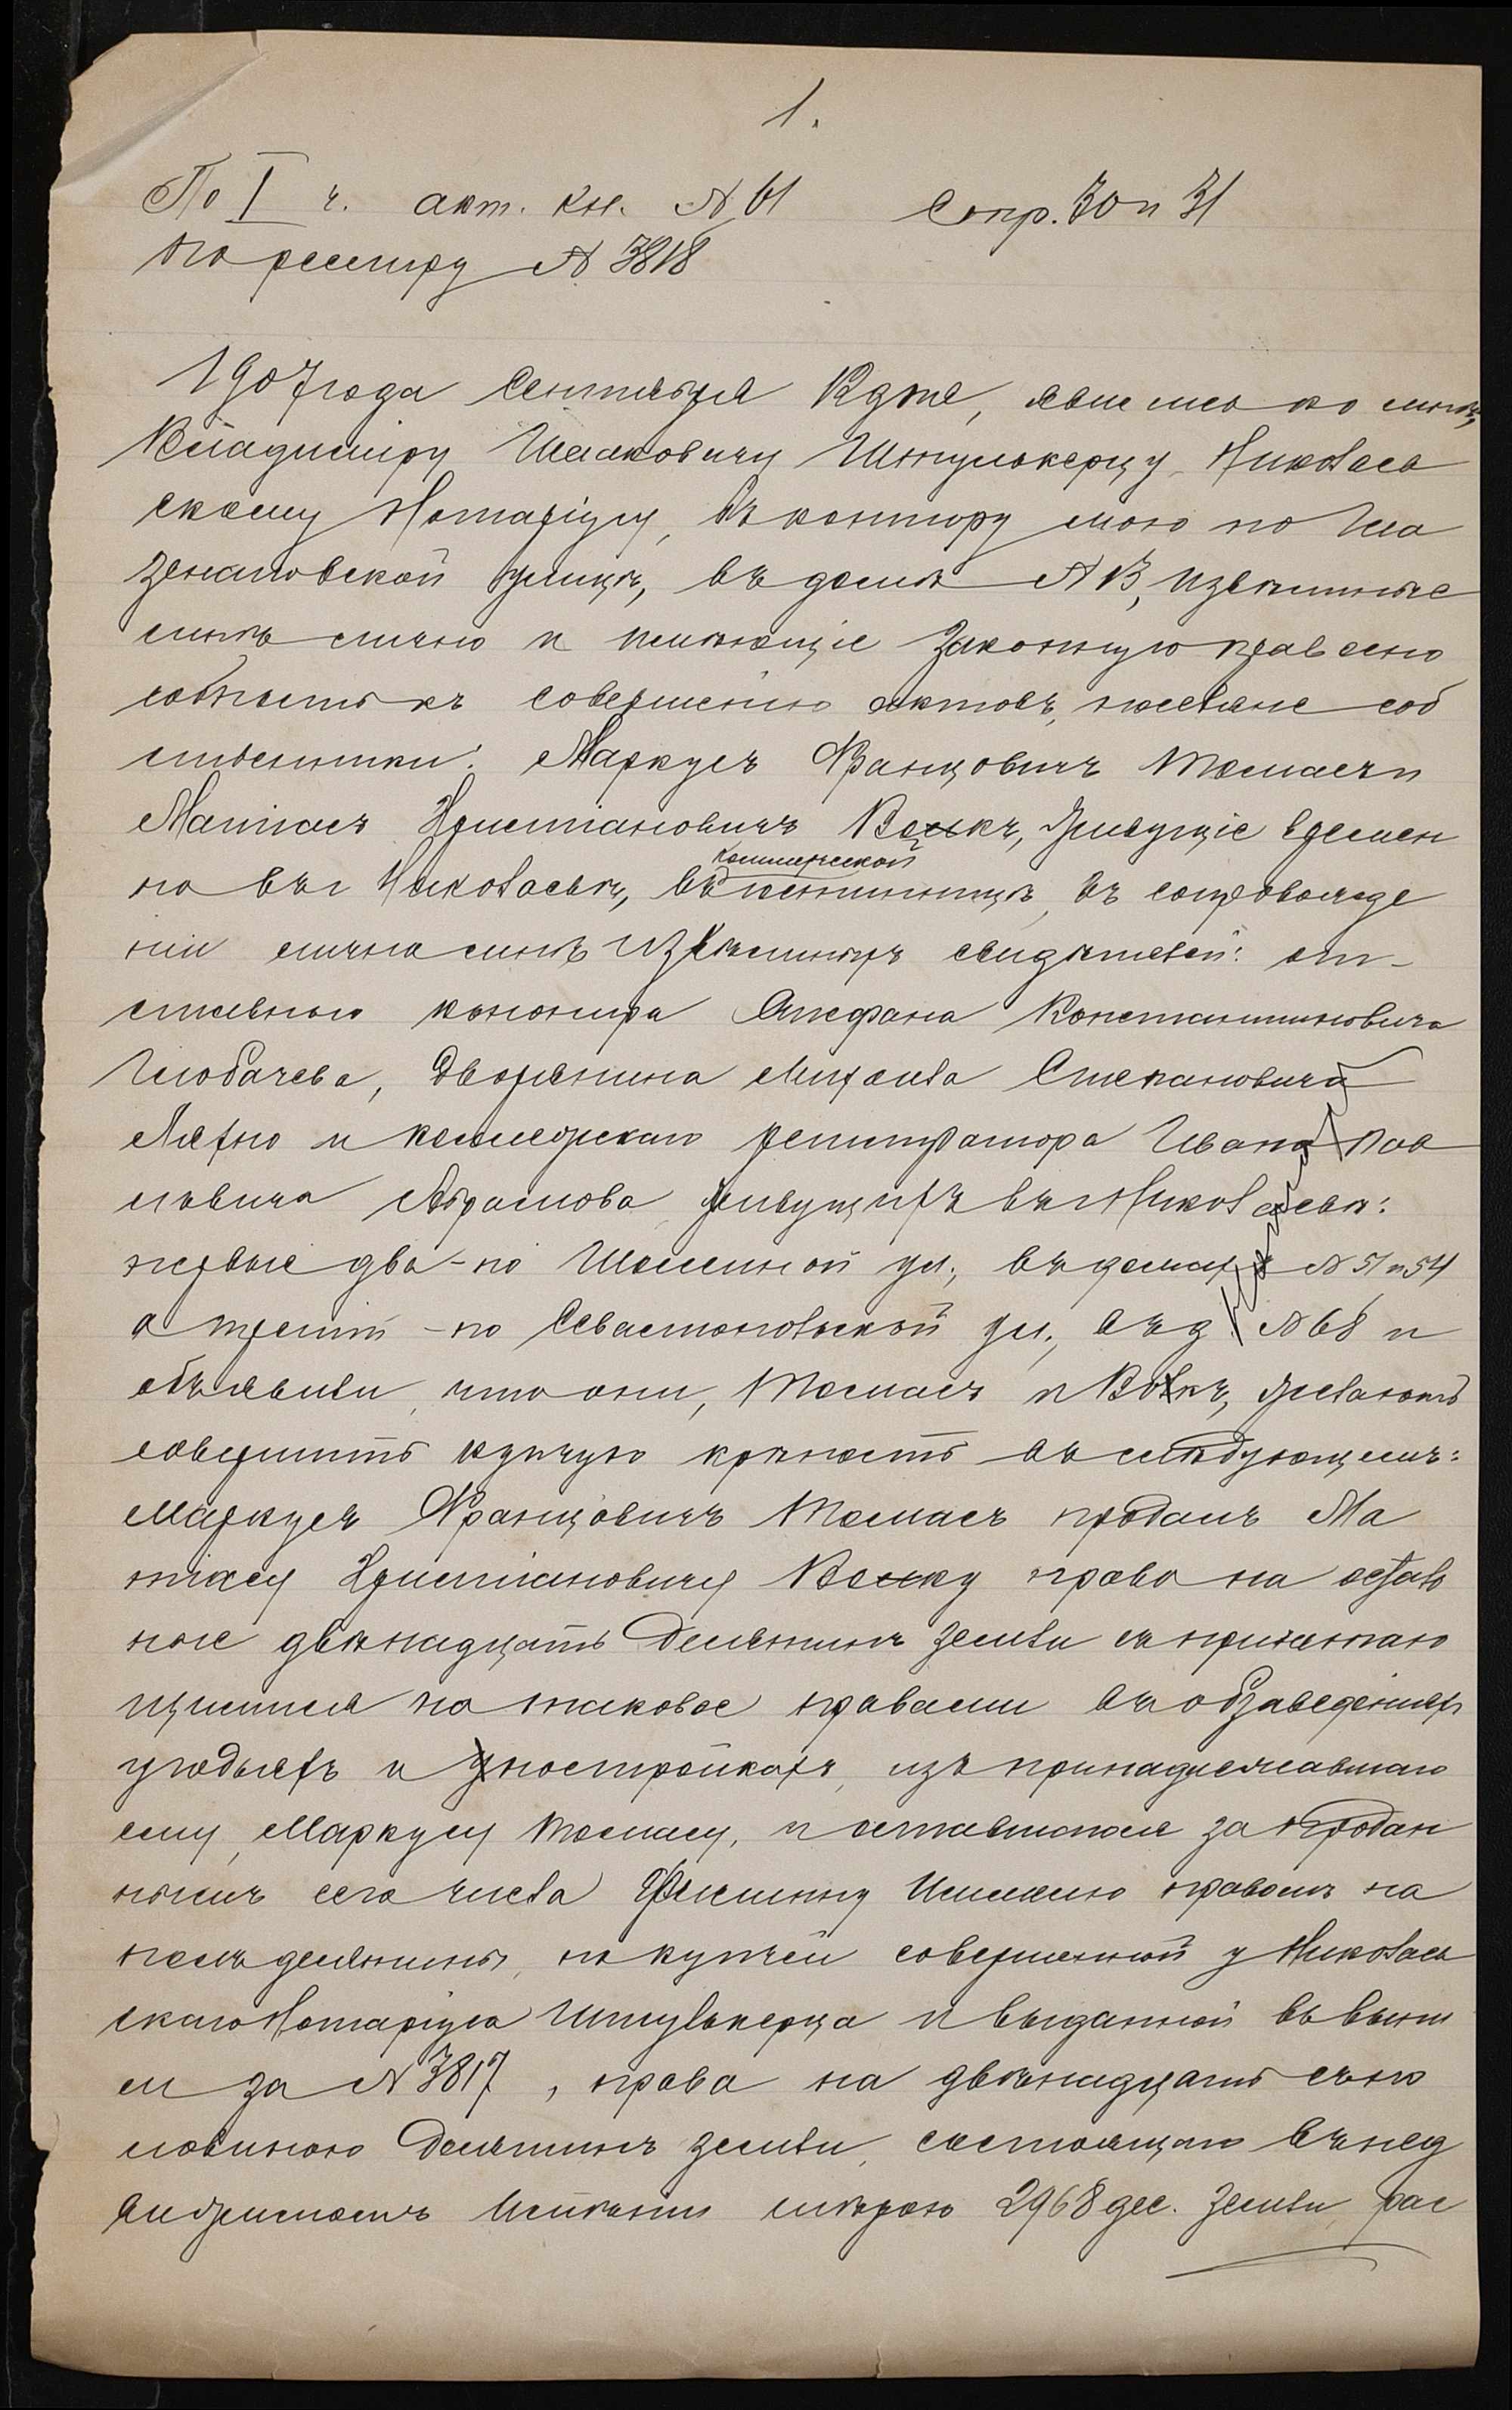 1.
По I ч. акт. кн. № 61 Стр. 30 и 31
по реестру № 3818
1907 года Сентября дня, явились ко мнѣ,
Владиміру Исааковичу Штулькерцу, Николаев
скому Нотаріусу, въ контору мою по
улицѣ, въ домѣ № 13, извѣстные
мнѣ лично и имѣющіе законную правоспо
собность къ совершенію актовъ, поселяне соб
ственники: Маркусъ Францовичъ Томасъ и
Матіасъ Христіановичъ Волкъ, живущіе времен
но въ г. Николаевѣ, въ коммерческой гостинницѣ, въ сопровожде
ніи лично мнѣ извѣстныхъ свидѣтелей: от-
ставного Стефана Константиновича
Дворянина Михаила Степановича
Ляхно и коллежскаго регистратора Ивана Пав
ловича Абрамова, живущихъ въ г. Николаевѣ:
первые два - по ул., въ домахъ № 51 и 54
а третій - по Севастопольской ул., въ д. № 68 и
объявили, что они, Томасъ и Волкъ, желаютъ
совершить купчую крѣпость въ слѣдующемъ:
Маркусъ Францовичъ Томасъ продалъ Ма
тіасу Христіановичу Волку право на осталь
ные двѣнадцать Десятинъ земли съ причитаю
щимися на таковое правами въ обзаведеніяхъ
угодьяхъ и постройкахъ, изъ принадлежавшаго
ему, Маркусу Томасу, и оставшагося за продан
нымъ сего числа правомъ на
полъ десятины, по купчей совершенной у Николаев
скаго Нотаріуса Штулькерца и выданной въ выпи
си за № 3817, права на двѣнадцать съ по
ловиною Десятинъ земли, состоящаго въ нед
вижимомъ имѣніи мѣрою 2968 дес. земли, рас